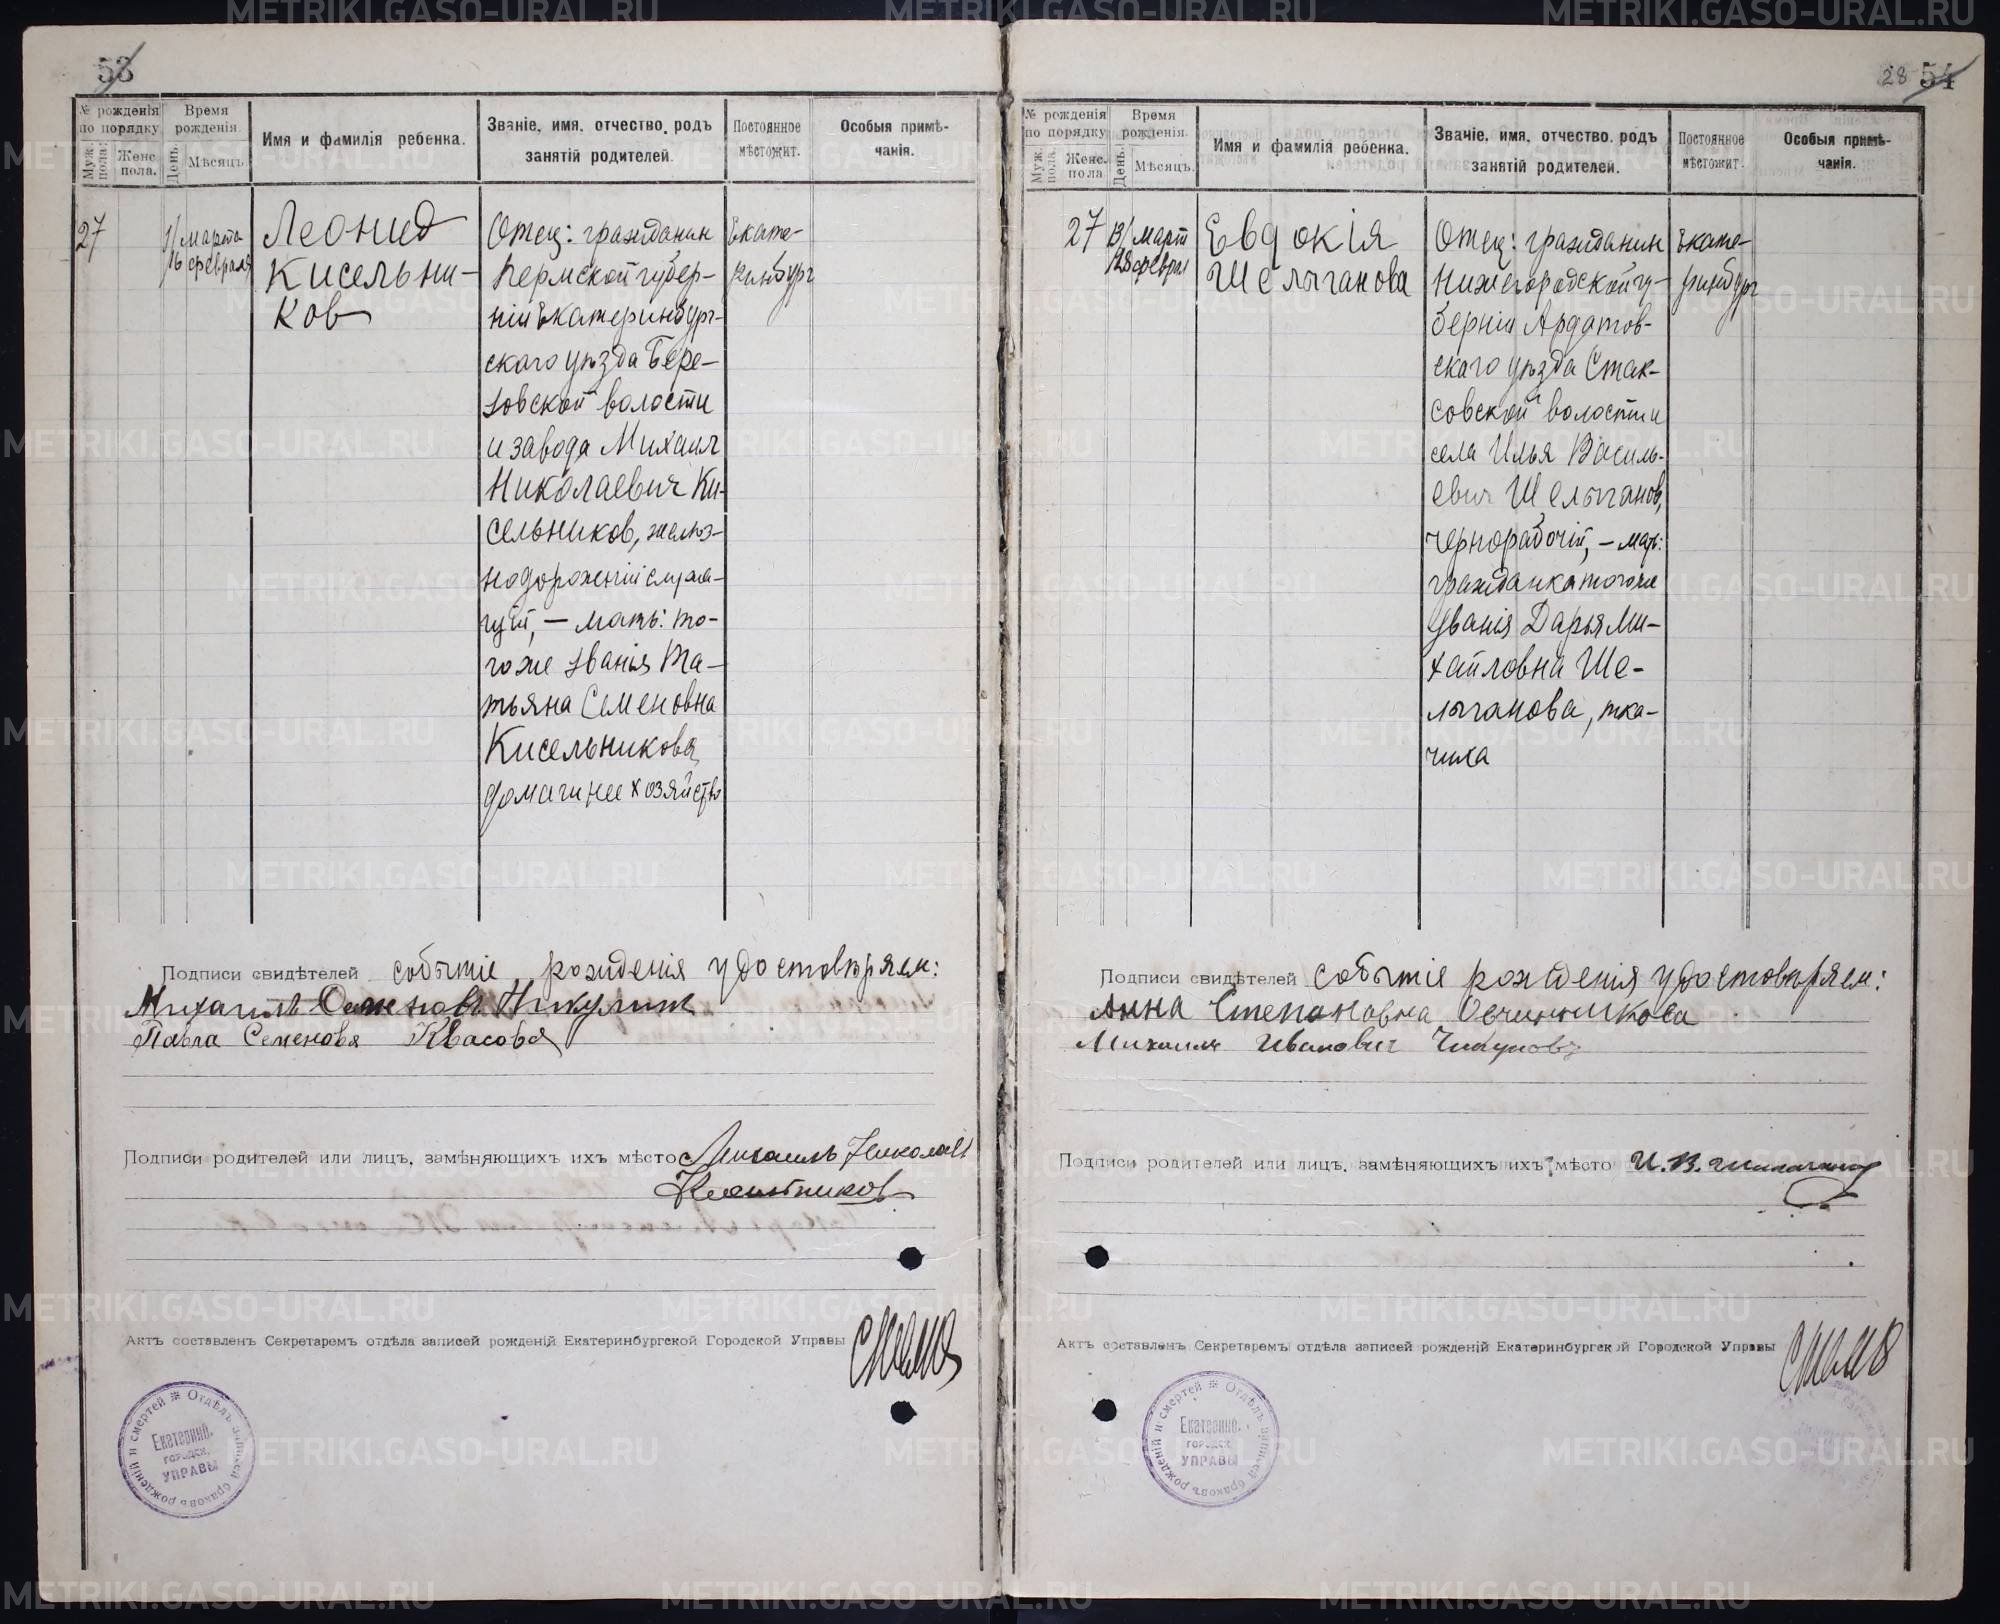 53
№ рожденія по порядку
Муж. пола.
Женс. пола.
Время рожденія.
День.
Мѣсяцъ.
Имя и фамилія ребенка.
Званіе, имя, отчество, родъ занятій родителей.
Постоянное мѣстожит.
Особыя примѣчанія.
27
1/ марта
16 февраля
Леонид
Кисельни-
ков
Отец: гражданин
Пермской губер-
ніи Екатеринбург-
скаго уѣзда Бере-
зовской волости
и завода Михаил
Николаевич Ки-
сельников, желѣз-
нодорожній служа-
щій, — мать: то-
гоже званія Та-
тьяна Семеновна
Кисельникова,
домашнее хозяйство
Екате-
ринбург
Подписи свидѣтелей событіе рожденія удостовѣряем:
Михаилъ Семеновъ Никулин
Павла Семенова Квасова
Подписи родителей или лицъ, замѣняющихъ ихъ мѣсто Михаилъ Николаев
Кисельников
Актъ составленъ Секретаремъ отдѣла записей рожденій Екатеринбургской Городской Управы
Отдѣлъ записей браковъ рожденій и смертей
Екатеринб.
городск.
УПРАВЫ
28 54
№ рожденія по порядку
Муж. пола.
Женс. пола
Время рожденія.
День.
Мѣсяцъ.
Имя и фамилія ребенка.
Званіе, имя, отчество, родъ занятій родителей.
Постоянное мѣстожит.
Особыя примѣчанія.
27
13/ март
28 феврал
Евдокія
Шелыганова
Отец: гражданин
Нижегородской гу-
берніи Ардатов-
скаго уѣзда Стак-
совской волости и
села Илья Василь-
евич Шелыганов,
чернорабочій, — мать:
гражданка тогоже
званія Дарья Ми-
хайловна Ше-
лыганова, тка-
чиха
Екате-
ринбург
Подписи свидѣтелей событіе рожденія удостовѣряем:
Анна Степановна Овчинникова
Михаилъ Иванович
Подписи родителей или лицъ, замѣняющихъ ихъ мѣсто И. В. Шелыганов
Актъ составленъ Секретаремъ отдѣла записей рожденій Екатеринбургской Городской Управы
Отдѣлъ записей браковъ рожденій и смертей
Екатеринб.
городск.
УПРАВЫ
METRIKI.GASO-URAL.RU